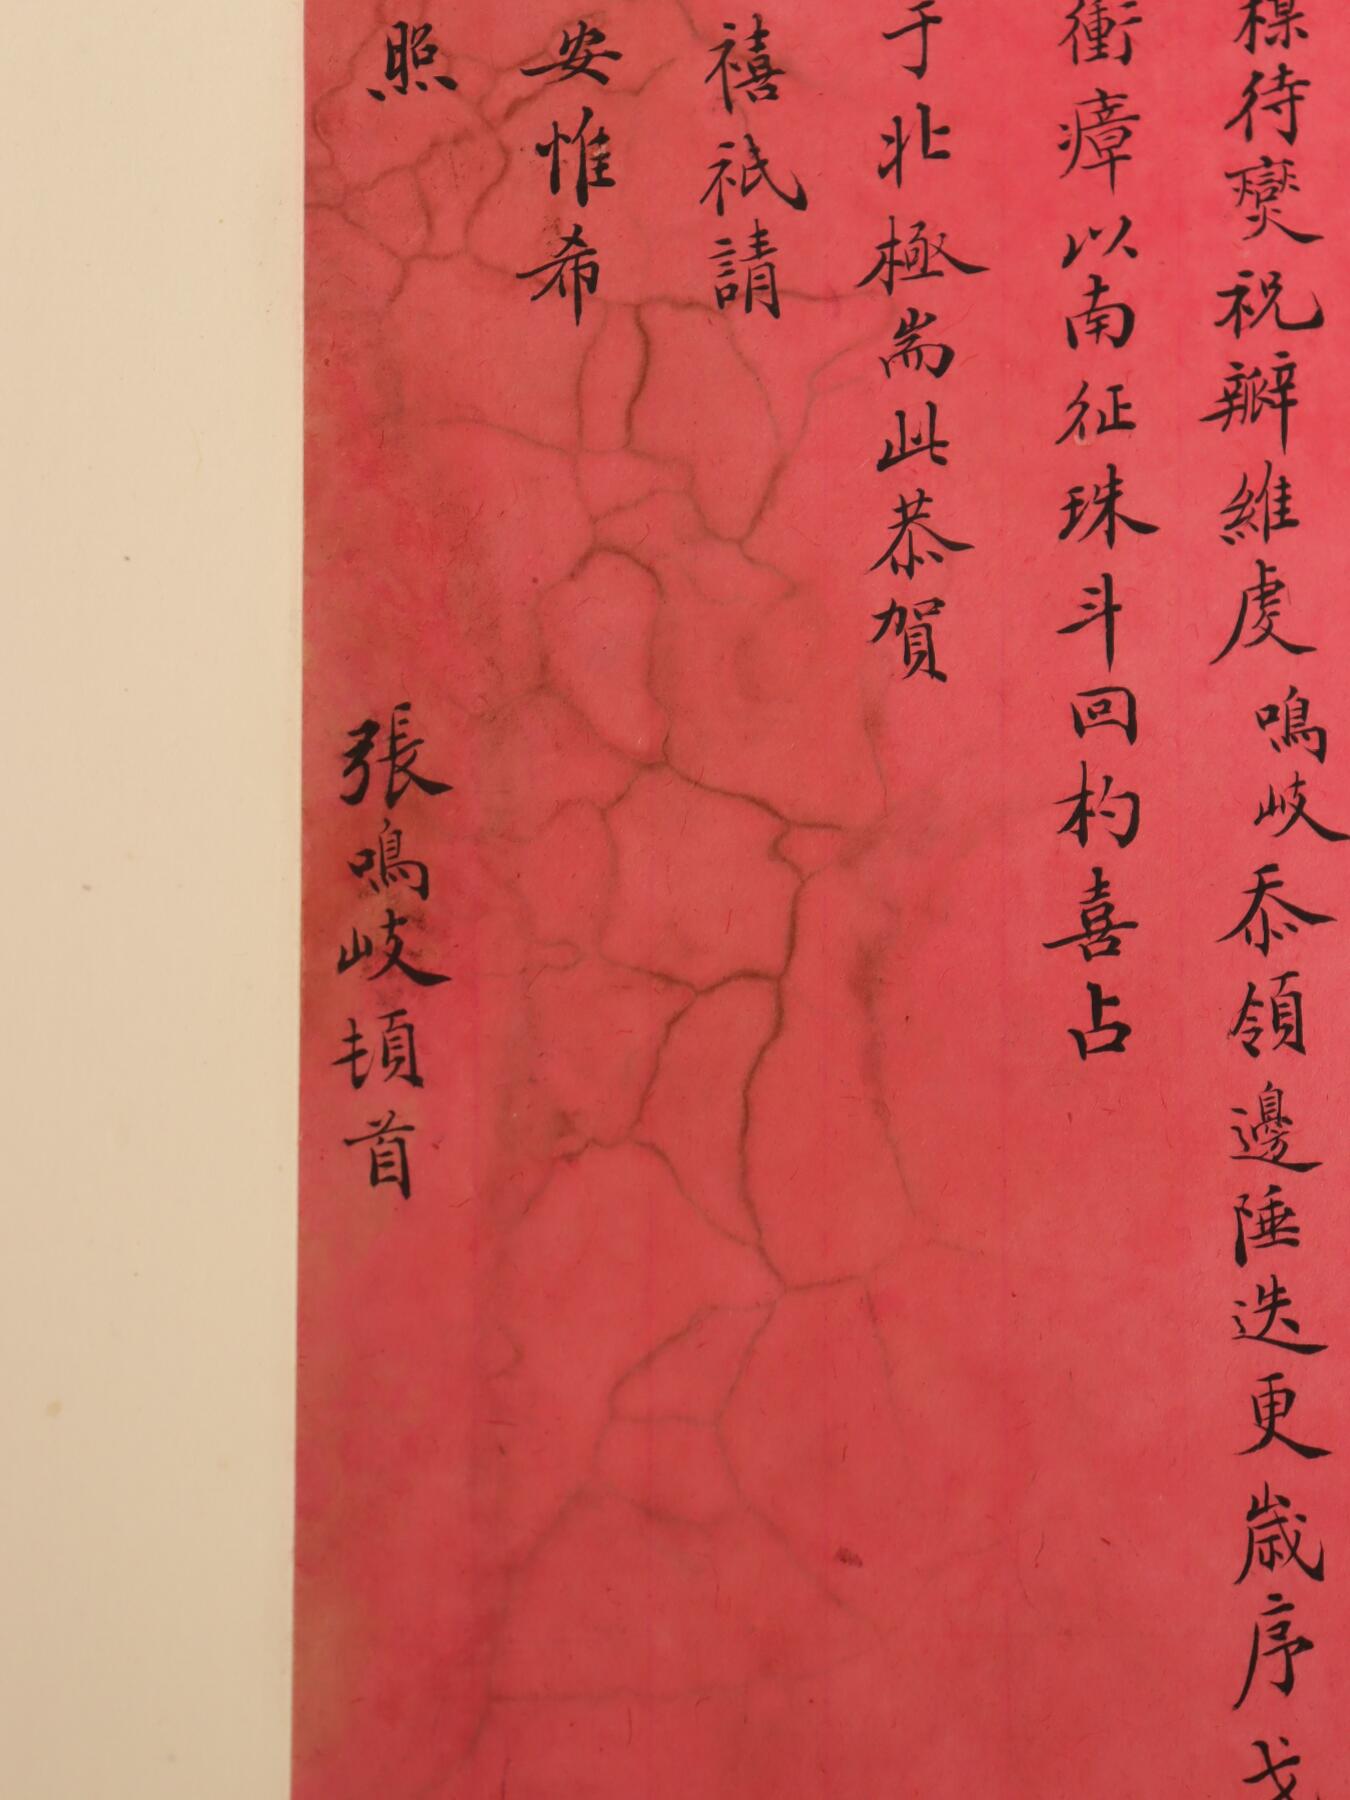 待燮祝瓣維虔鳴岐忝領邊陲迭更歲序
衝瘴以南征珠斗回杓喜占
于北極耑此恭賀
禧祇請
安惟希
照
張鳴岐頓首